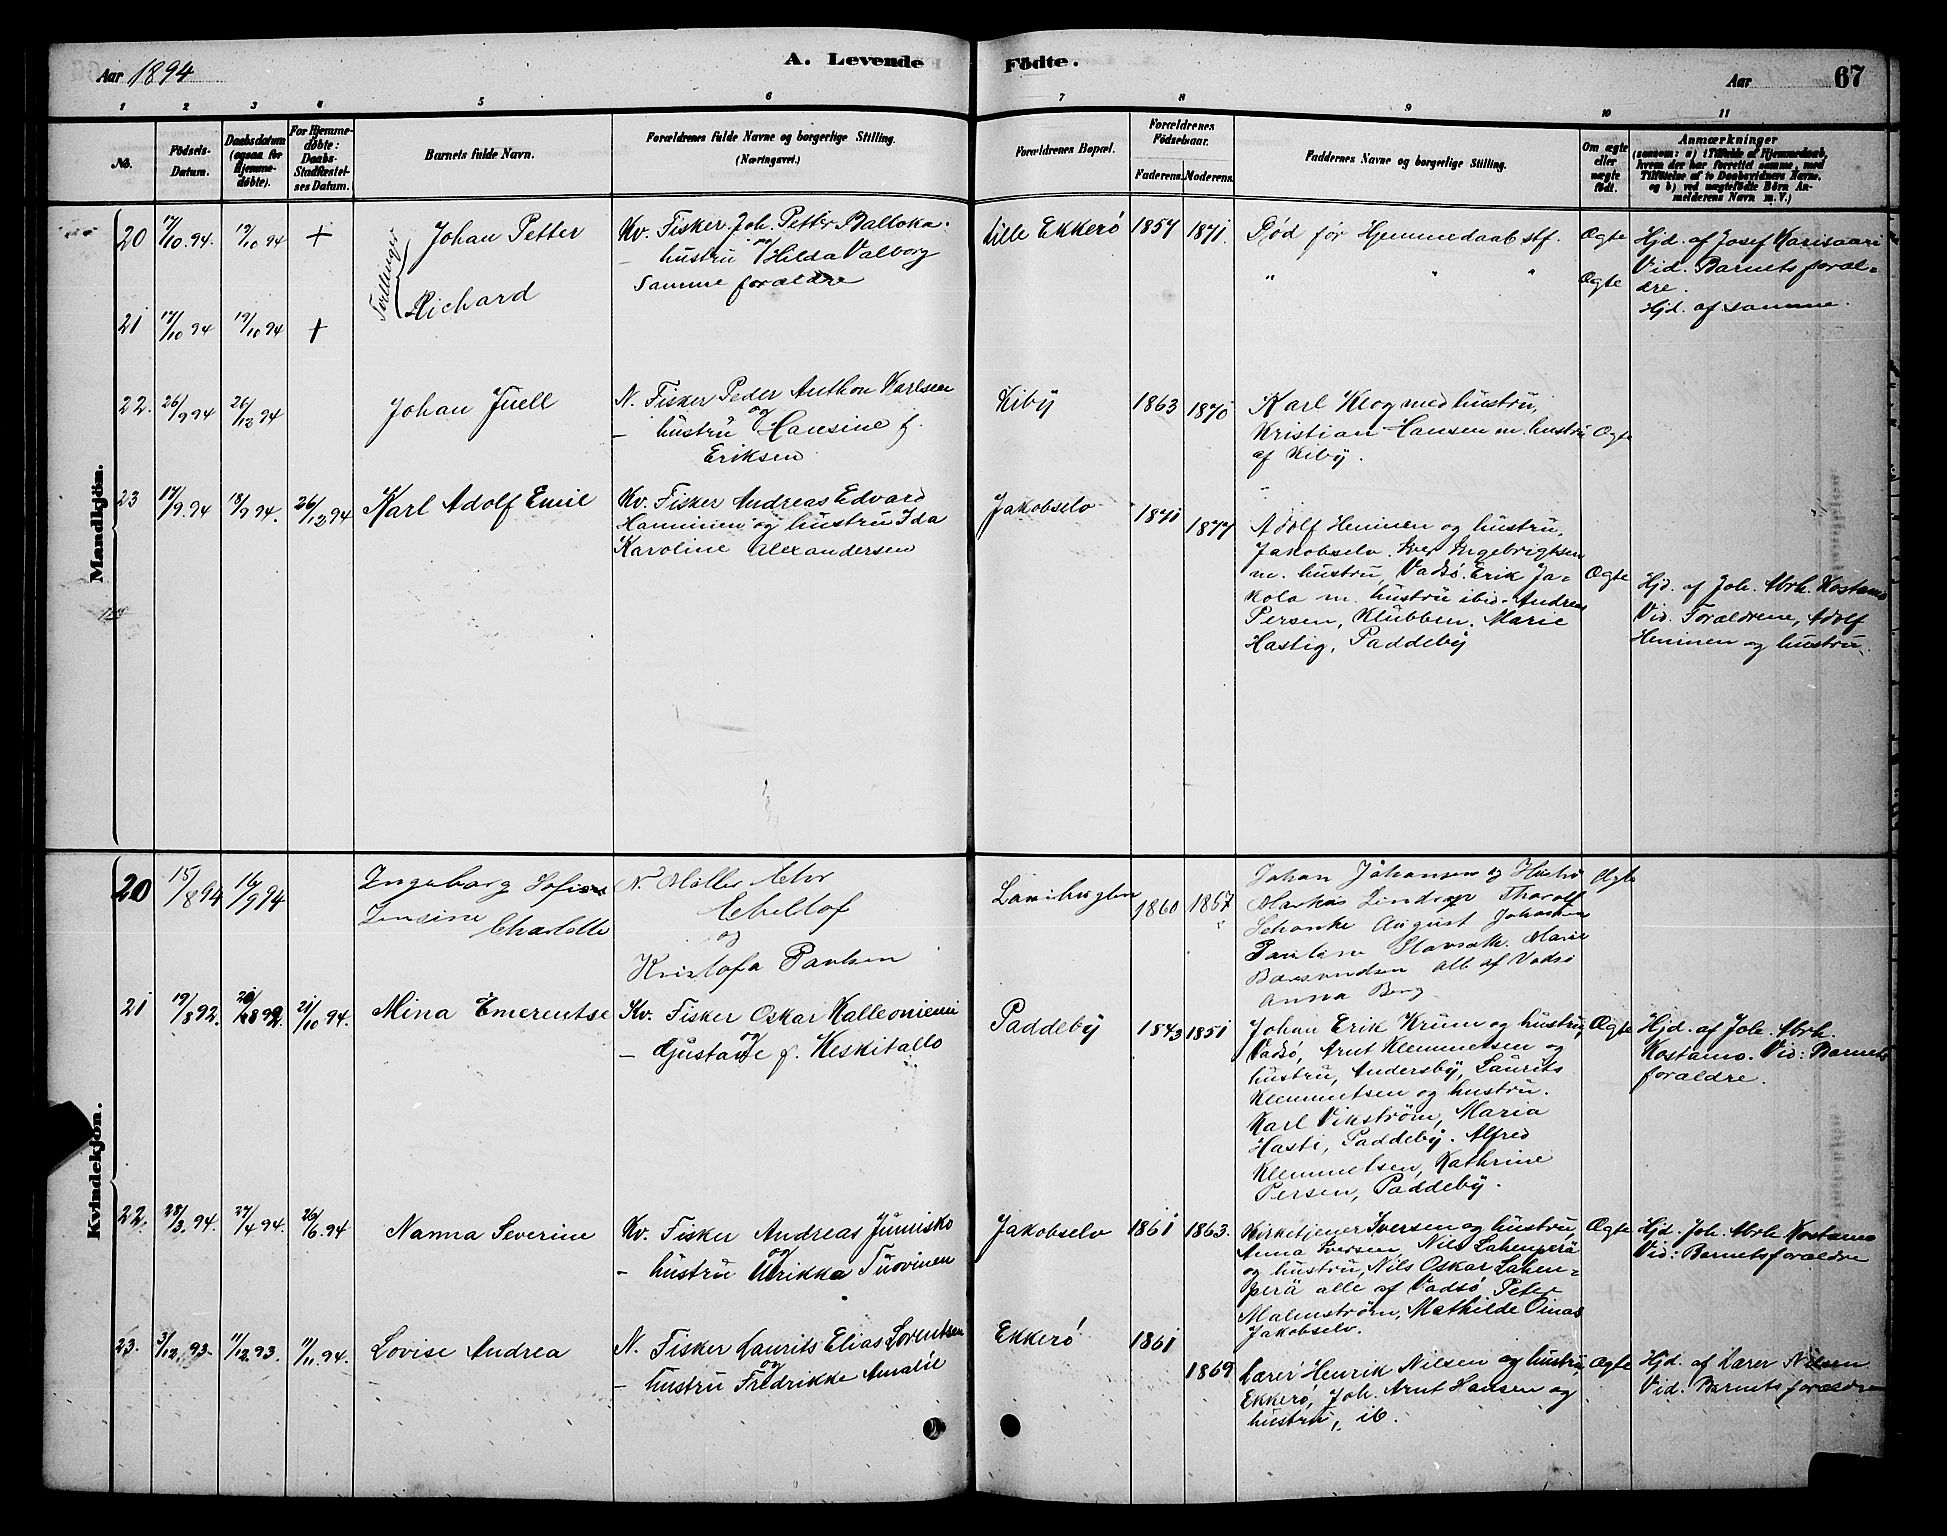 Aar 1894
A. Levende Födte.
Aar
67
1 2 3 4 5 6 7 8 9 10 11
No.
Födsels-Datum.
Daabsdatum (ogsaa for Hjemmedøbte).
For Hjemmedøbte: Daabs-Stadfæstelses Datum.
Barnets fulde Navn.
Forældrenes fulde Navne og borgerlige Stilling. (Næringsvei.)
Forældrenes Bopæl.
Forældrenes Födselsaar.
Faderens. Moderens.
Faddernes Navne og borgerlige Stilling.
Om ægte eller uægte födt.
Anmærkninger
(saasom: a) i Tilfælde af Hjemmedaab,
hvem der har forrettet samme, med
Tilföielse af to Daabsvidners Navne,
og b) ved uægtefödte Börn Anmelderens Navn m. V.)
Mandkjön.
20 17/10.94. 19/10 94 + Tvillinger Johan Petter
Kv. Fisker Joh. Petter Balloka.
– hustru og Hilda Valborg
Lille Ekkerö 1857 1871.
Död før Hjemmedaab stf. Ægte
Hjd. af Josef Karisaari
Vid. Barnets foræl-
dre.
21 17/10 94 19/10 94 + Richard
Samme forældre
" " " Ægte
Hjd. af samme.
22. 26/9 94 26/12 94 Johan Juell
N. Fisker Peder Anthon Karlsen
– hustru og Hansine f.
Eriksen
Kiby 1863 1870
Karl Klog med hustru,
Kristian Hansen m. hustru
af Kiby.
Ægte
23 17/9.94 18/9 94. 26/12 94 Karl Adolf Emil
Kv. Fisker Andreas Edvard
Hanninen og hustru Ida
Karoline Alexandersen
Jakobselv 1871 1877
Adolf Heninen og hustru,
Jakobselv. Iver Engebrigtsen
m. hustru, Vadsö. Erik Ja-
kola m. hustru ibid. Andreas
Persen, Klubben. Marie
Hastig, Paddeby
Ægte
Hjd. af Joh. Abrh. Kostamo
Vid. Forældrene, Adolf
Heninen og hustru.
Kvindekjön.
20 15/8 94 16/9 94 Ingeborg Sofie
Jensine Charlotte
N. Møller
Ebeltof
og
Kristofa Paulsen
1860 1867
Johan Johansen og Hustru
Markus Lindrup Tharolf
Schanke August Johansen
Pauline
alle af Vadsø
Anna Berg
Ægte
21 19/8 92. 20/8 92. 21/10 94. Mina Emerentse
Kv. Fisker Oskar Kalleoniemi
og
– Gjustave f. Keskitallo
Paddeby 1843 1851
Johan Erik Krum og hustru,
Vadsö, Arnt Klemmetsen og
hustru, Andersby, Laurits
Klemmetsen og hustru.
Karl Vikström, Maria
Hasti, Paddeby. Alfred
Klemmetsen, Kathrine
Persen, Paddeby.
Ægte
Hjd. af Joh. Abrh.
Kostamo. Vid: Barnets
forældre.
22. 28/3.94. 27/4 94. 26/6.94 Nanna Severine
Kv. Fisker Andreas Junisko
og
– hustru Ulrikka Tuovinen
Jakobselv 1861 1863.
Kirketjener Iversen og hustru,
Anna Iversen, Nils Lahenperä
og hustru, Nils Oskar Lahen-
perä alle af Vadsö, Peter
Malmström, Mathilde Oinas
Jakobselv.
Ægte
Hjd. Joh. Abrh. Kostamo
Vid: Barnets forældre
23. 3/12.93. 11/12.93. 11/11.94. Lovise Andrea
N. Fisker Laurits Elias Lorentsen
og
– hustru Fredrikke Amalie
Ekkerö 1861 1869
Lærer Henrik Nilsen og hustru,
Ekkerö, Joh. Arnt Hansen og
hustru, ib.
Ægte
Hjd. af Lærer Nilsen
Vid. Barnets forældre